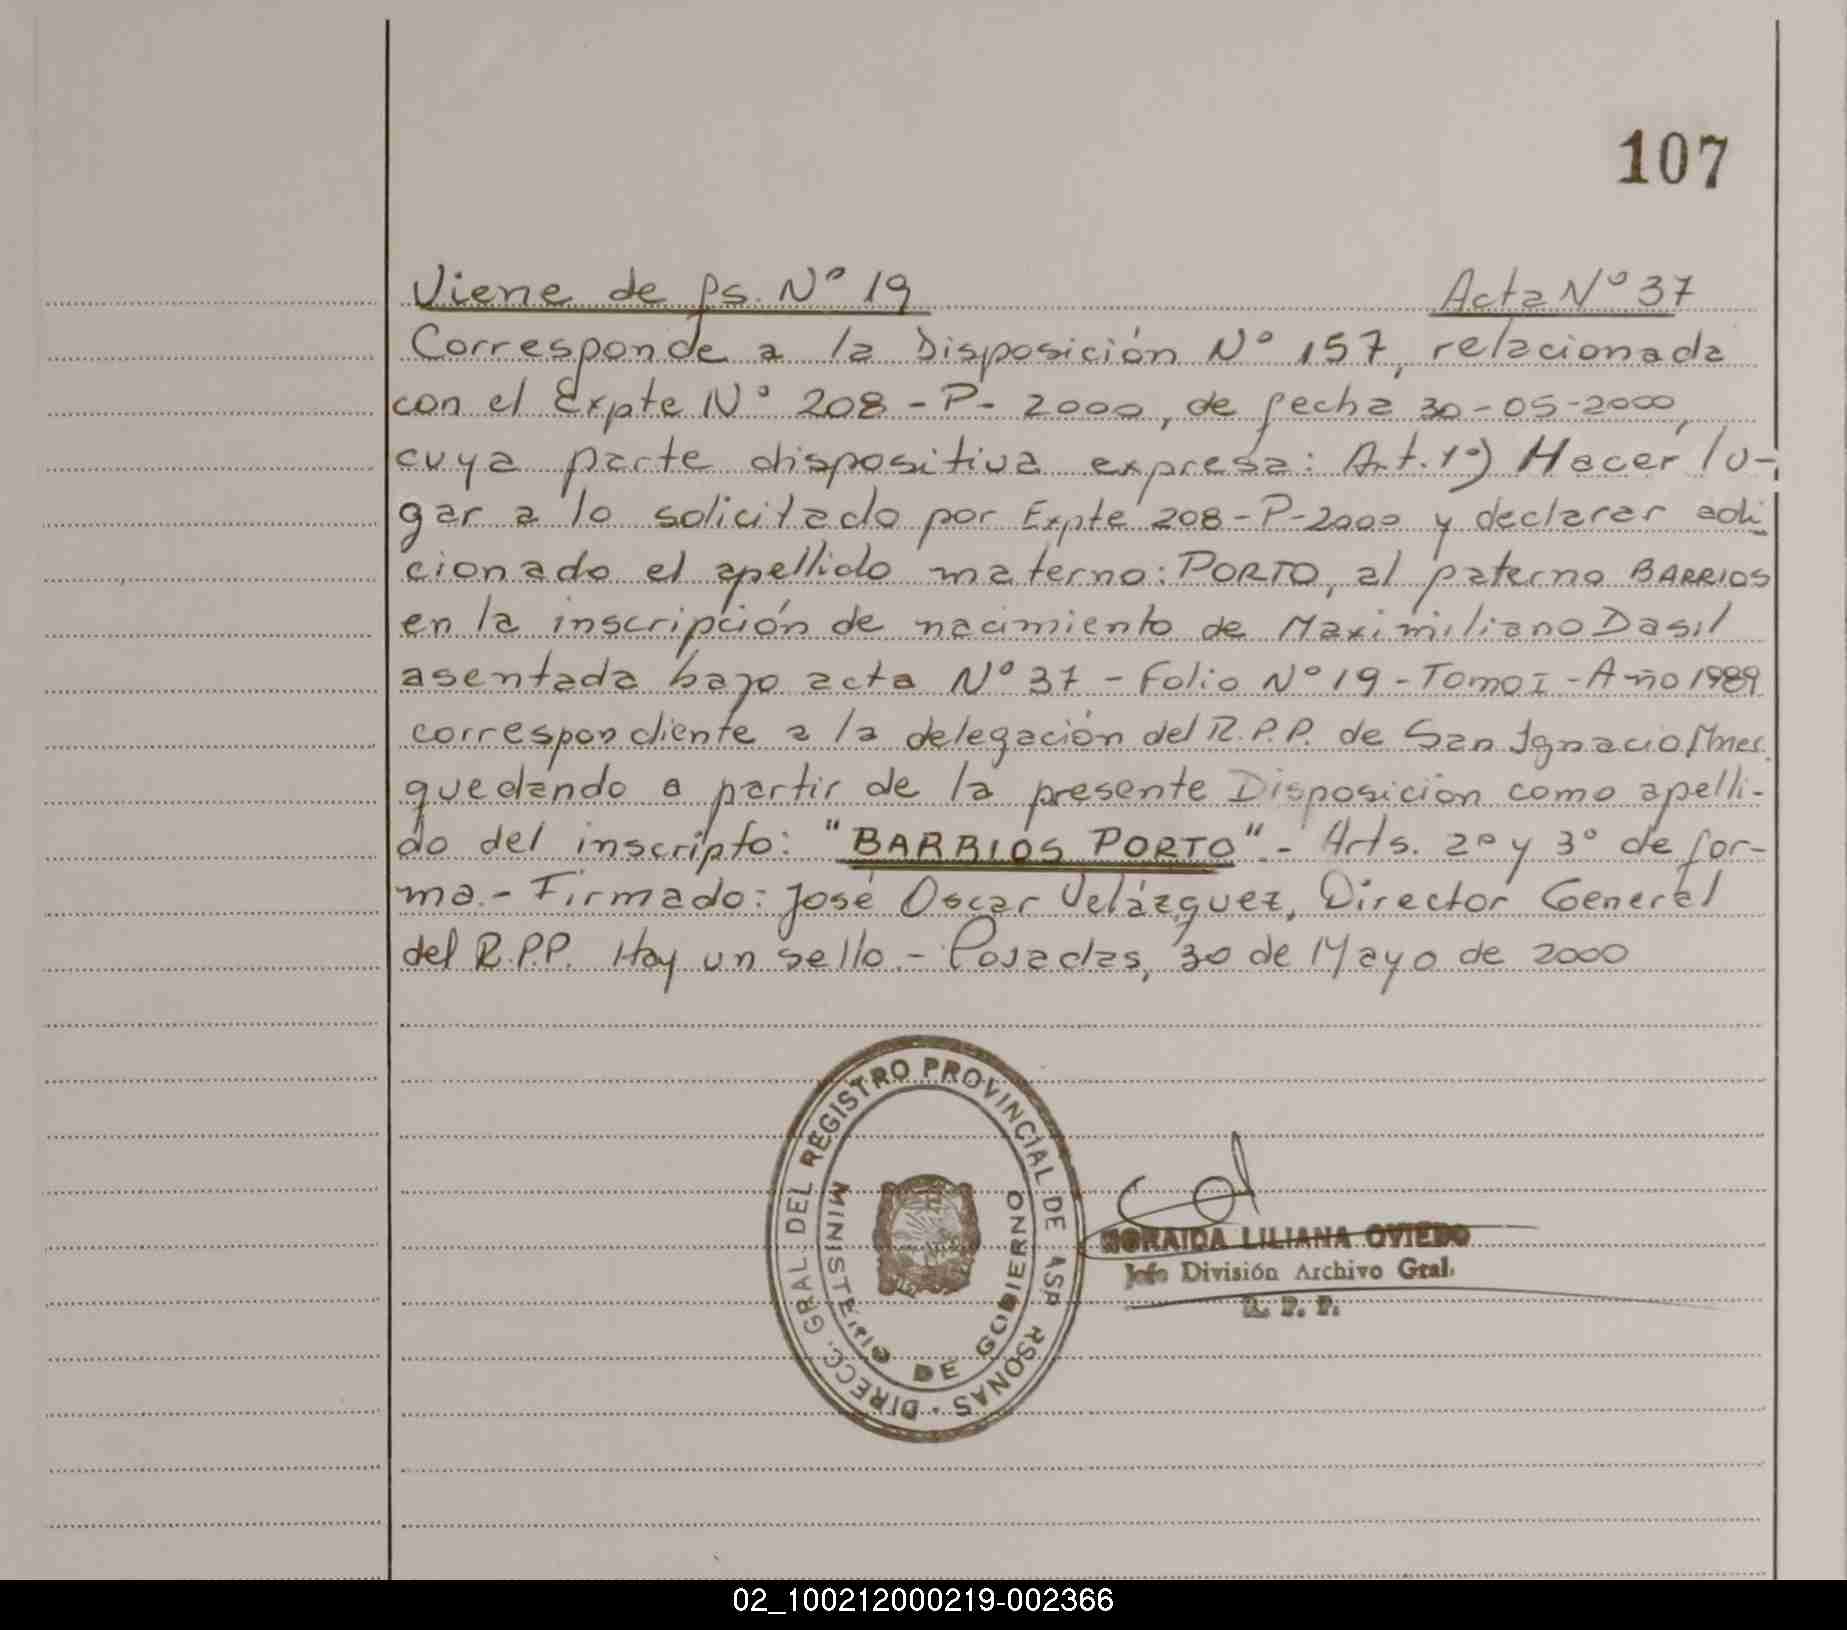 107
Viene de fs. Nº 19 Acta Nº 37
Corresponde a la Disposición Nº 157, relacionada
con el Expte Nº 208-P-2000, de fecha 30-05-2000,
cuya parte dispositiva expresa: Art. 1º) Hacer lu-
gar a lo solicitado por Expte 208-P-2000 y declarar adi
cionado el apellido materno: PORTO, al paterno BARRIOS
en la inscripción de nacimiento de Maximiliano Dasil
asentada bajo acta Nº 37 - Folio Nº 19 - Tomo I - Año 1989
correspondiente a la delegación del R.P.P. de San Ignacio, Mnes.
quedando a partir de la presente Disposición como apelli-
do del inscripto: "BARRIOS PORTO".- Arts. 2º y 3º de for-
ma.- Firmado: José Oscar Velázquez, Director General
del R.P.P. Hay un sello.- Posadas, 30 de Mayo de 2000
DIRECC. GRAL DEL REGISTRO PROVINCIAL DE
MINISTERIO DE GOBIERNO
LILIANA OVIEDO
Jefe División Archivo Gral.
R. P. P.
02_100212000219-002366